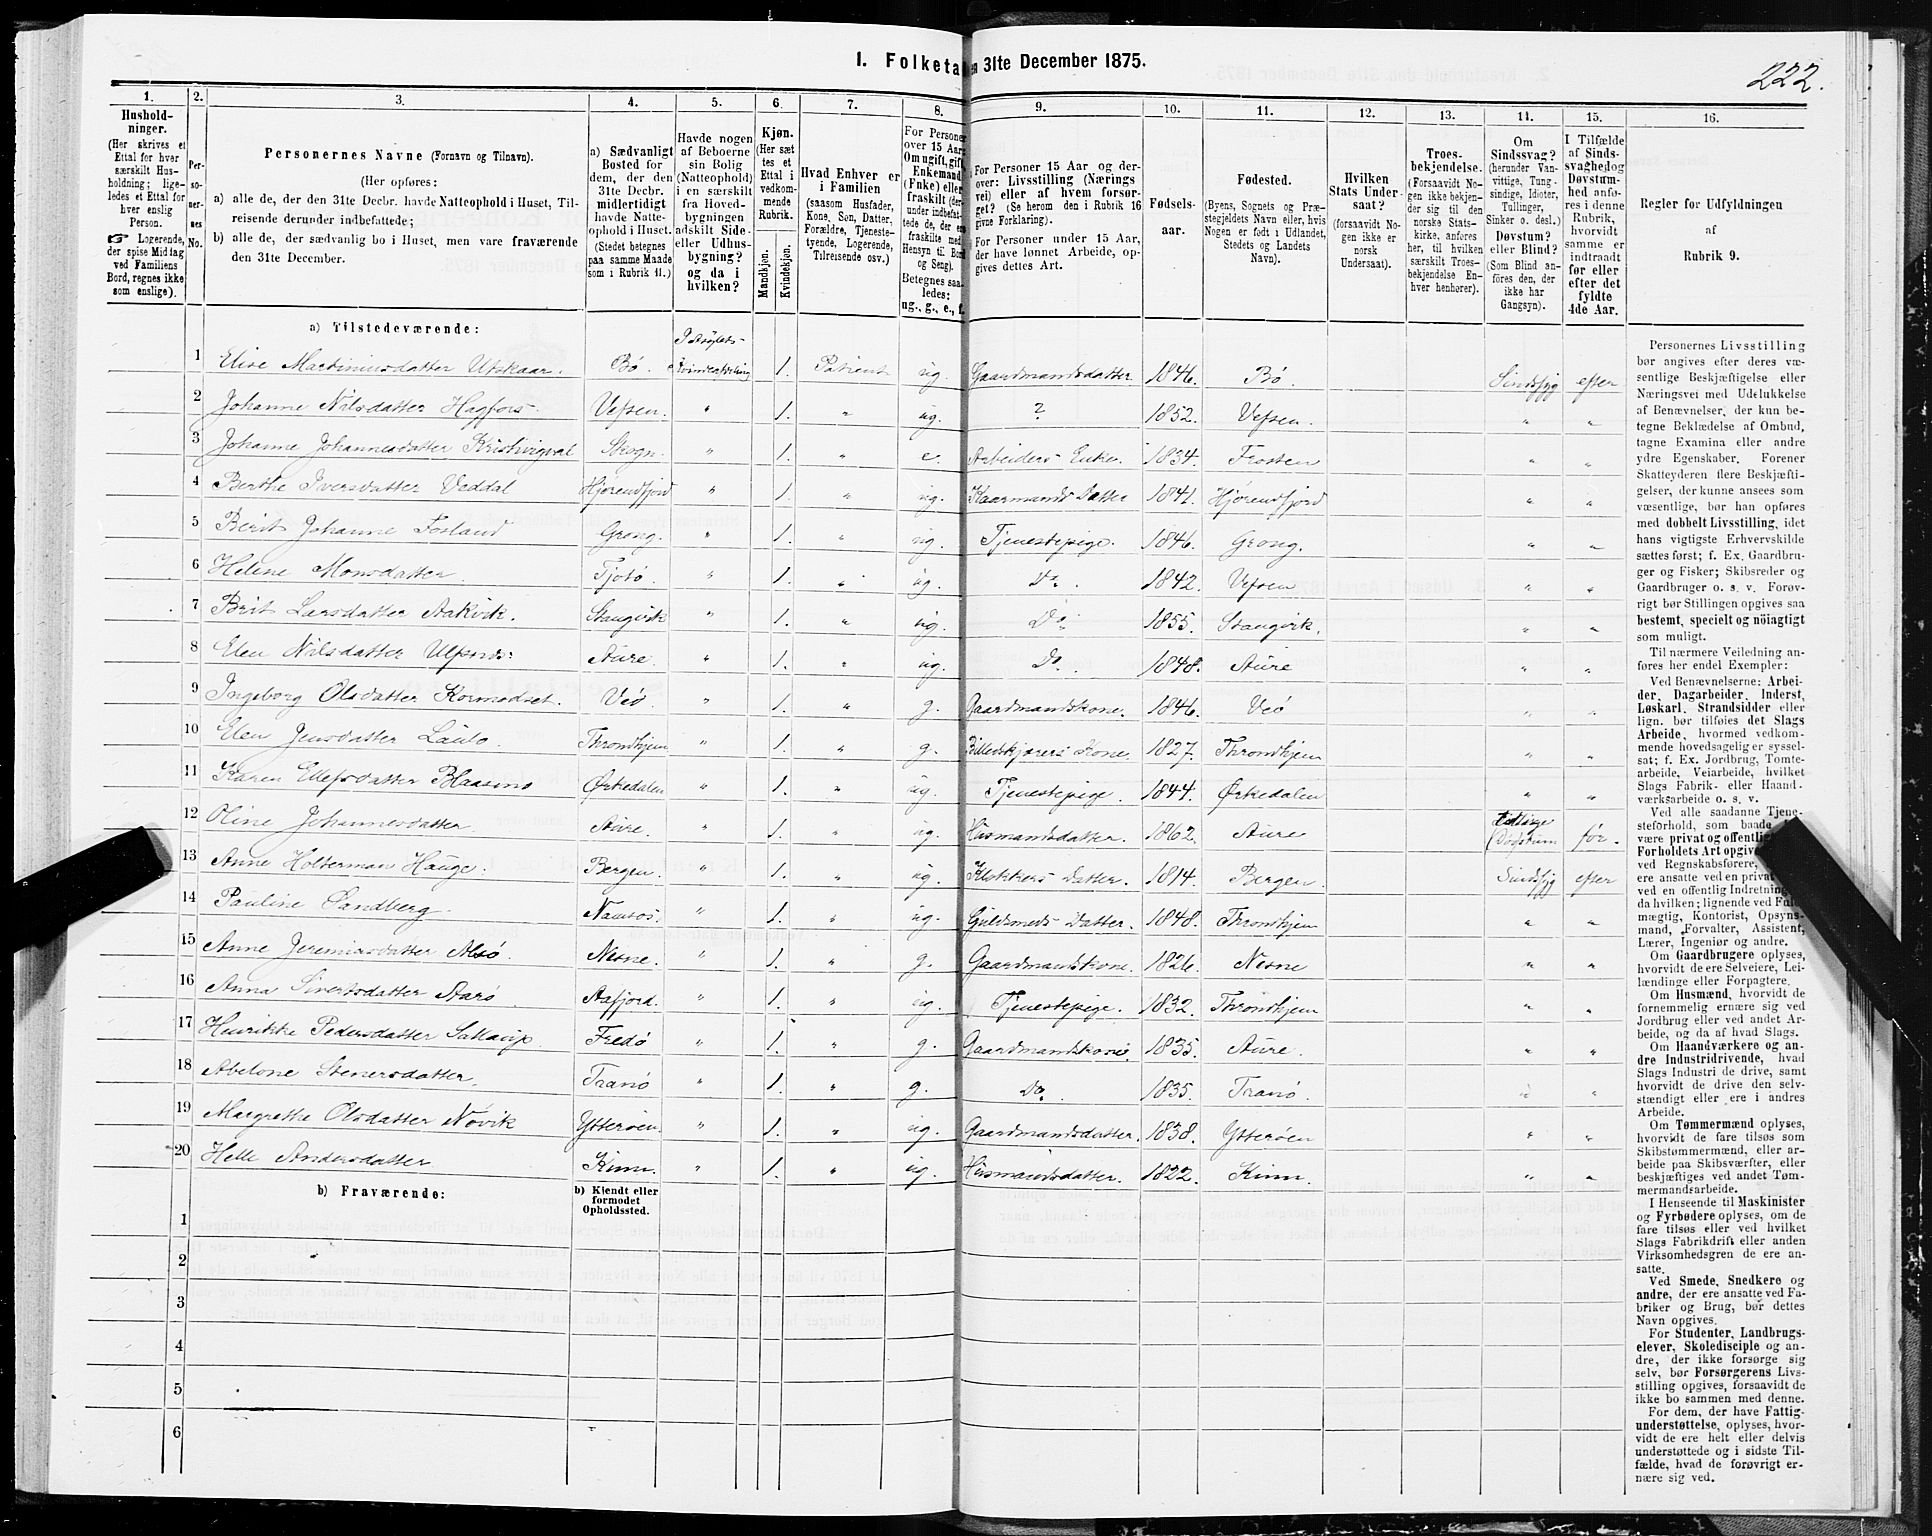 1. Folketa en 31te December 1875.
222.
1. 2. 3. 4. 5. 6. 7. 8. 9. 10. 11. 12. 13. 14. 15. 16.
Hushold-
ninger.
(Her skrives et
Ettal for hver
særskilt Hus-
holdning; lige-
ledes et Ettal for
hver enslig
Person.
☞ Logerende,
der spise Middag
ved Familiens
Bord, regnes ikke
som enslige).
Per-
so-
ner-
nes
No.
Personernes Navne (Fornavn og Tilnavn).
(Her opføres:
a) alle de, der den 31te Decbr. havde Natteophold i Huset, Til-
reisende derunder indbefattede;
b) alle de, der sædvanlig bo i Huset, men vare fraværende
den 31te December.
a) Sædvanligt
Bosted for
dem, der den
31te Decbr.
midlertidigt
havde Natte-
ophold i Huset.
(Stedet betegnes
paa samme Maade
som i Rubrik 11.)
Havde nogen
af Beboerne
sin Bolig
(Natteophold)
i en særskilt
fra Hoved-
bygningen
adskilt Side-
eller Udhus-
bygning?
og da i
hvilken?
Kjøn.
(Her sæt-
tes et
Ettal i
vedkom-
mende
Rubrik.
Mandkjøn.
Kvindekjøn.
Hvad Enhver er
i Familien
(saasom Husfader,
Kone, Søn, Datter,
Forældre, Tjeneste-
tyende, Logerende,
Tilreisende osv.)
For Personer
over 15 Aar:
Om ugift, gift,
Enkemand
(Enke) eller
fraskilt (der-
under indbefat-
tede de, der ere
fraskilte med
Hensyn til Bord
og Seng).
Betegnes saa-
ledes:
ug., g., e., f.
For Personer 15 Aar og der-
over: Livsstilling (Nærings-
vei) eller af hvem forsør-
get? (Se herom den i Rubrik 16
givne Forklaring).
For Personer under 15 Aar,
der have lønnet Arbeide, op-
gives dettes Art.
Fødsels-
aar.
Fødested.
(Byens, Sognets og Præ-
stegjeldets Navn eller, hvis
Nogen er født i Udlandet,
Stedets og Landets
Navn).
Hvilken
Stats Under-
saat?
(forsaavidt No-
gen ikke er
norsk
Undersaat).
Troes-
bekjendelse.
(Forsaavidt No-
gen ikke bekjen-
der sig til den
norske Stats-
kirke, anføres
her, til hvilken
særskilt Troes-
bekjendelse En-
hver henhører).
Om
Sindssvag?
(herunder Van-
vittige, Tung-
sindige, Idioter,
Tullinger,
Sinker o. desl.)
Døvstum?
eller Blind?
(Som Blind an-
føres den, der
ikke har
Gangsyn).
I Tilfælde
af Sinds-
svaghed og
Døvstum-
hed anfø-
res i denne
Rubrik,
hvorvidt
samme er
indtraadt
før eller
efter det
fyldte
4de Aar.
Regler for Udfyldningen
af
Rubrik 9.
a) Tilstedeværende:
1 Elise Martiniusdatter Utskaar. Bø. 1. Patient ug. Gaardmandsdatter 1846. Bø. Sindssyg efter
2 Johanne Nilsdatter Hagfors. Vefsen. " 1. " ug. ? 1852. Vefsen. " "
3 Johanne Johannesdatter Skogn. " 1. " e. Arbeiders Enke. 1834. Frosten " "
4 Berthe Iversdatter Veddal Hjørendfjord " 1. " ug. Gaarmands Datter 1841. Hjørendfjord " "
5 Berit Johanne Fosland Grong. " 1. " ug. Tjenestepige. 1846. Grong. " "
6 Helene Monsdatter. Tjøtø. " 1. " ug. Do. 1842. Vefsen " "
7 Brit Larsdatter Aakvik. Stangvik " 1. " ug. Do. 1855. Stangvik. " "
8 Elen Nilsdatter Aure. " 1. " ug. Do. 1848. Aure " "
9 Ingeborg Olsdatter Kormedset. Veø. " 1. " g. Gaardmandskone. 1846. Veø " "
10 Elen Jensdatter Throndhjem " 1. " g. Billedskjærers Kone. 1827. Throndhjem " "
11 Karen Ellefsdatter Blaasmo Ørkedalen " 1. " ug. Tjenestepige. 1844. Ørkedalen " "
12 Oline Johannesdatter. Aure. " 1. " ug. Husmandsdatter. 1862. Aure før.
13 Anne Holterman Hauge. Bergen. " 1. " ug. Klokkers Datter. 1814. Bergen. Sindssyg efter
14 Pauline Sandberg. Namsos. " 1. " ug. Guldsmeds Datter. 1848. Throndhjem " "
15 Anne Jeremiasdatter Alsø. Nesne. " 1. " g. Gaardmandskone. 1826. Nesne " "
16 Anna Sivertsdatter Aarø Aafjord. " 1. " ug. Tjenestepige. 1832. Throndhjem " "
17 Henrikke Pedersdatter Fredø " 1. " g. Gaardmandskone. 1835. Aure. " "
18 Abelone Stenersdatter. Tranø " 1. " g. Do. 1835. Tranø. " "
19 Margrethe Olsdatter Növik Ytterøen. " 1. " ug. Gaardmandsdatter. 1838. Ytterøen " "
20 Helle Andersdatter Kinn. " 1. " ug. Husmandsdatter. 1822. Kinn. " "
b) Fraværende:
b) Kjendt eller
formodet
Opholdssted.
1
2
3
4
5
6
Personernes Livsstilling
bør angives efter deres væ-
sentlige Beskjæftigelse eller
Næringsvei med Udelukkelse
af Benævnelser, der kun be-
tegne Beklædelse af Ombud,
tagne Examina eller andre
ydre Egenskaber. Forener
Skatteyderen flere Beskjæfti-
gelser, der kunne ansees som
væsentlige, bør han opføres
med dobbelt Livsstilling, idet
hans vigtigste Erhvervskilde
sættes først; f. Ex. Gaardbru-
ger og Fisker; Skibsreder og
Gaardbruger o. s. v. Forøv-
rigt bør Stillingen opgives saa
bestemt, specielt og nöiagtigt
som muligt.
Til nærmere Veiledning an-
føres her endel Exempler:
Ved Benævnelserne: Arbei-
der, Dagarbeider, Inderst,
Løskarl, Strandsidder eller
lign. bør tilføies det Slags
Arbeide, hvormed vedkom-
mende hovedsagelig er syssel-
sat; f. Ex. Jordbrug, Tomte-
arbeide, Veiarbeide, hvilket
Slags Fabrik- eller Haand-
værksarbeide o. s. v.
Ved alle saadanne Tjene-
steforhold, som baade
være privat og offentlig
Forholdets Art opgives
ved Regnskabsførere,
ere ansatte ved en privat
ved en offentlig Indretning
da hvilken; lignende ved Fuld-
mægtig, Kontorist, Opsyns-
mand, Forvalter, Assistent,
Lærer, Ingeniør og andre.
Om Gaardbrugere oplyses,
hvorvidt de ere Selveiere, Lei-
lændinge eller Forpagtere.
Om Husmænd, hvorvidt de
fornemmelig ernære sig ved
Jordbrug eller ved andet Ar-
beide, og da af hvad Slags.
Om Haandværkere og an-
dre Industridrivende, hvad
Slags Industri de drive, samt
hvorvidt de drive den selv-
stændigt eller ere i andres
Arbeide.
Om Tømmermænd oplyses,
hvorvidt de fare tilsøs som
Skibstømmermænd, eller ar-
beide paa Skibsværfter, eller
beskjæftiges ved andet Tøm-
mermandsarbeide.
I Henseende til Maskinister
og Fyrbødere oplyses, om de
fare tilsøs eller ved hvilket
Slags Fabrikdrift eller anden
Virksomhedsgren de ere an-
satte.
Ved Smede, Snedkere og
andre, der ere ansatte ved Fa-
briker og Brug, bør dettes
Navn opgives.
For Studenter, Landbrugs-
elever, Skoledisciple og an-
dre, der ikke forsørge sig
selv, bør Forsørgerens Livs-
stilling opgives, forsaavidt de
ikke bo sammen med denne.
For dem, der have Fattig-
understøttelse, oplyses, hvor-
vidt de ere helt eller delvis
understøttede og i sidste Til-
fælde, hvad de forøvrigt er-
nære sig ved.